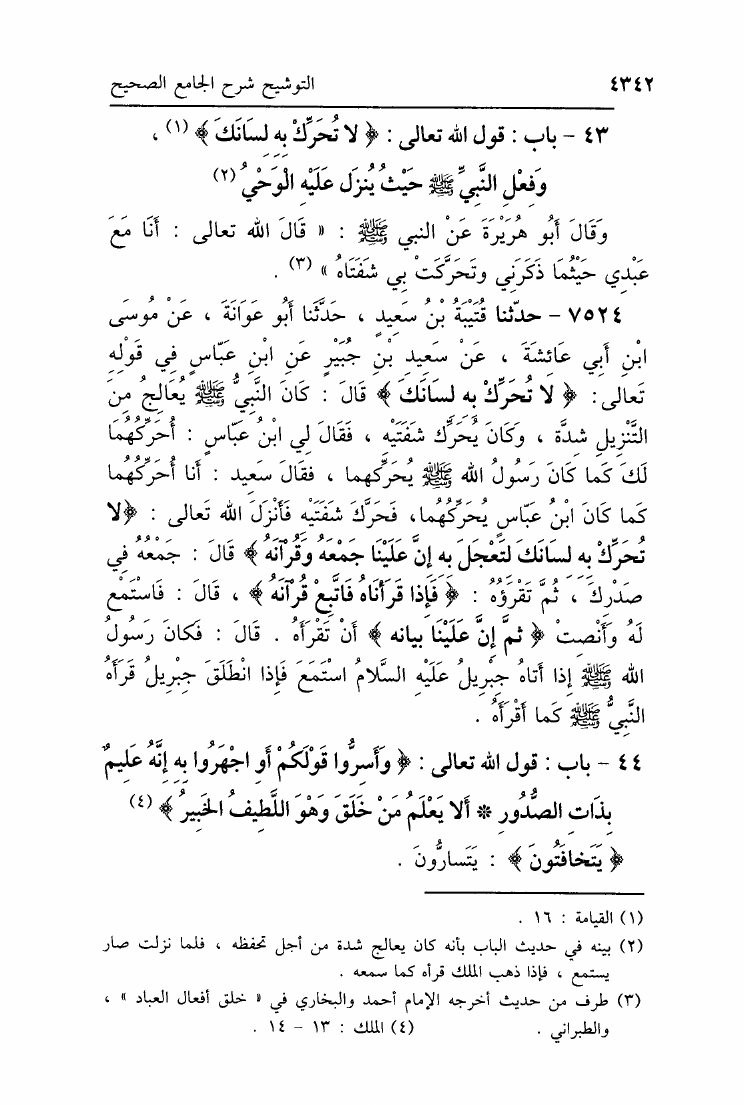 ٤٣٤٢ التوشيح شرح الجامع الصحيح
٤٣ - باب : قول الله تعالى : ﴿ لا تُحَرِّكْ بِهِ لِسَانَكَ ﴾ (١) ،
وَفِعْلِ النَّبِيِّ ﷺ حَيْثُ يُنزَل عَلَيْهِ الْوَحْيُ (٢)
وَقَالَ أَبُو هُرَيْرَةَ عَنْ النبي ﷺ : « قَالَ الله تعالى : أَنَا مَعَ
عَبْدِي حَيْثُمَا ذَكَرَنِي وتَحَرَّكَتْ بِي شَفَتَاهُ » (٣) .
٧٥٢٤ - حدّثنا قُتَيْبَةُ بْنُ سَعِيدٍ ، حَدَّثَنا أَبُو عَوَانَةَ ، عَنْ مُوسَى
ابْنِ أَبِي عَائِشَةَ ، عَنْ سَعِيدِ بْنِ جُبَيْرٍ عَنِ ابْنِ عَبّاسٍ فِي قَوْلِهِ
تَعالى: ﴿ لا تُحَرِّكْ بِهِ لِسَانَكَ ﴾ قَالَ : كَانَ النَّبِيُّ ﷺ يُعَالِجُ مِنَ
التَّنْزِيلِ شِدَّة ، وكَانَ يُحَرِّك شَفَتَيْهِ ، فَقَالَ لِي ابْنُ عَبّاسٍ : أُحَرِّكُهُمَا
لَكَ كَما كَانَ رَسُولُ الله ﷺ يُحَرِّكهما ، فقَالَ سَعِيد : أنا أُحَرِّكُهُما
كَما كانَ ابْنُ عَبّاسٍ يُحَرِّكُهُمَا، فَحَرَّكَ شَفَتَيْهِ فَأَنْزَلَ الله تَعالى : ﴿لا
تُحَرِّكْ بِهِ لِسَانَكَ لِتَعْجَلَ بِهِ إِنَّ عَلَيْنَا جَمْعَهُ وَقُرْآنَهُ ﴾ قَالَ : جَمْعُهُ فِي
صَدْرِكَ ، ثُمَّ تَقْرَؤُهُ : ﴿ فَإِذَا قَرَأْنَاهُ فَاتَّبِعْ قُرْآنَهُ ﴾ ، قَالَ : فَاسْتَمْع
لَهُ وَأَنْصِتْ ﴿ ثمَّ إنَّ عَلَيْنَا بيانه ﴾ أَنْ تَقْرَأَهُ . قَالَ : فَكانَ رَسُولُ
الله ﷺ إِذا أَتاهُ جِبْرِيلُ عَلَيْهِ السَّلامُ اسْتَمَعَ فَإِذا انْطَلَقَ جِبْرِيلُ قَرَأَهُ
النَّبِيُّ ﷺ كَما أَقْرَأَهُ .
٤٤ - باب : قول الله تعالى : ﴿ وَأَسِرُّوا قَوْلَكُمْ أَوِ اجْهَرُوا بِهِ إِنَّهُ عَلِيمٌ
بِذَاتِ الصُّدُورِ * أَلا يَعْلَمُ مَنْ خَلَقَ وَهُوَ اللَّطِيفُ الْخَبِيرُ ﴾ (٤)
﴿ يَتَخافَتُونَ ﴾ : يَتَسارُّونَ .
(١) القيامة : ١٦ .
(٢) بينه في حديث الباب بأنه كان يعالج شدة من أجل تحفظه ، فلما نزلت صار
يستمع ، فإذا ذهب الملك قرأه كما سمعه .
(٣) طرف من حديث أخرجه الإمام أحمد والبخاري في « خلق أفعال العباد » ،
والطبراني . (٤) الملك : ١٣ - ١٤ .